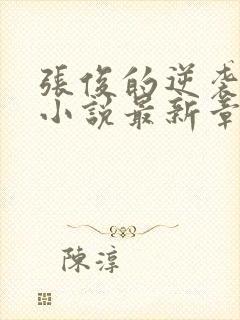 張俊的逆袭
小說最新章
陳淳